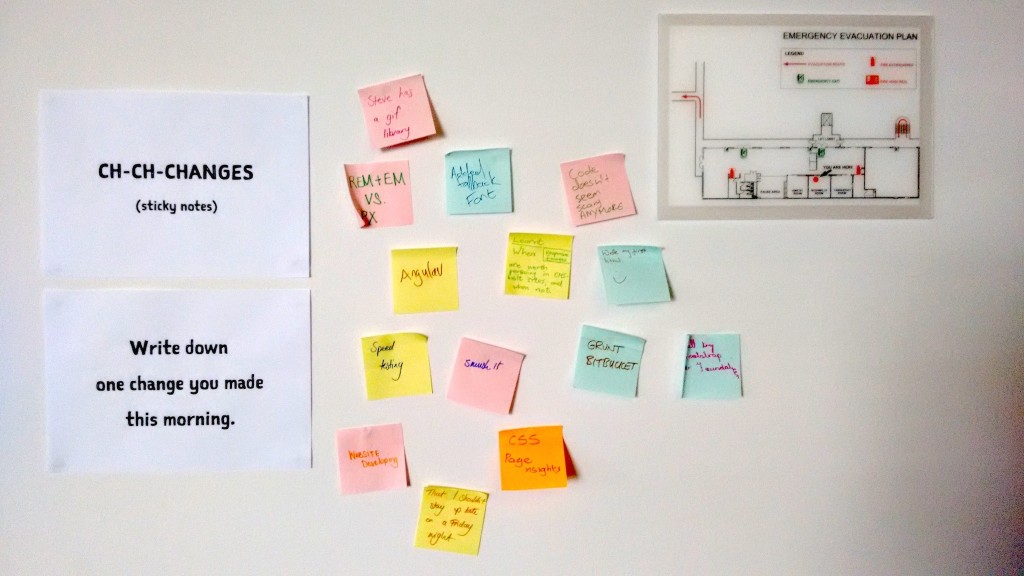 CH-CH-CHANGES
(sticky notes)
Write down
one change you made
this morning.
Steve has
a gif
library
REM+EM
VS.
PX
Added
fallback
Font
Code
doesn't
seem
scary
ANYMORE
Angular
When
are worth
and
when not.
Speed
testing
smush.it
GRUNT
BITBUCKET
WEBSITE
Developing
CSS
Page
insights
That I shouldn't
stay up late
on a Friday
night
EMERGENCY EVACUATION PLAN
LEGEND
EVACUATION ROUTE
FIRE EXTINGUISHER
EMERGENCY EXIT
YOU ARE HERE